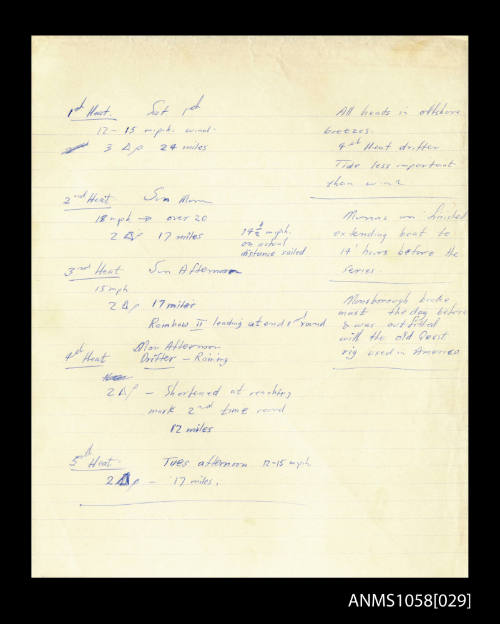 1st Heat. Sat 1st
12-15 mph. wind.
3 Δs 24 miles
2nd Heat Sun Morn
18 mph → over 20
2 Δs 17 miles
14½ mph.
on actual
distance sailed
3rd Heat Sun Afternoon
15 mph
2 Δs 17 miles
Rainbow II leading at end 1st round
4th Heat Mon Afternoon
Drifter - Raining
2 Δs - Shortened at reaching
mark 2nd time round
12 miles
5th Heat. Tues afternoon 12-15 mph.
2 Δs - 17 miles.
All heats in offshore
breezes.
4th Heat drifter
Tide less important
than wind
finished
extending boat to
14 hours before the
series.
broke
mast the day before
& was outfitted
with the old Quest
rig used in America
ANMS1058[029]